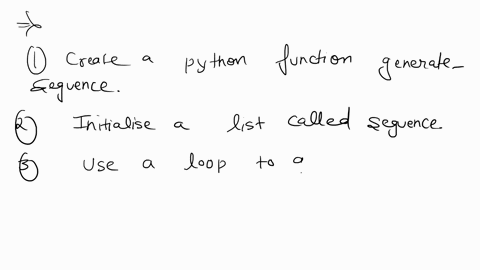 ① Create a python function generate_
sequence.
② Initialise a list called sequence
③ Use a loop to